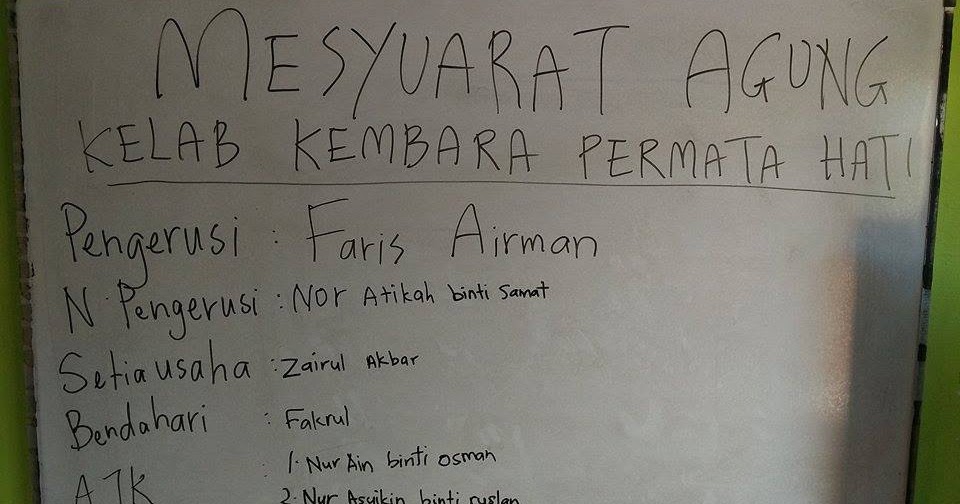 MESYUARAT AGUNG
KELAB KEMBARA PERMATA HATI
Pengerusi : Faris Airman
N. Pengerusi : Nor Atikah binti Samat
Setiausaha : Zairul Akbar
Bendahari : Fakrul
AJK : 1. Nur Ain binti osman
2. Nur Asyikin binti ruslan